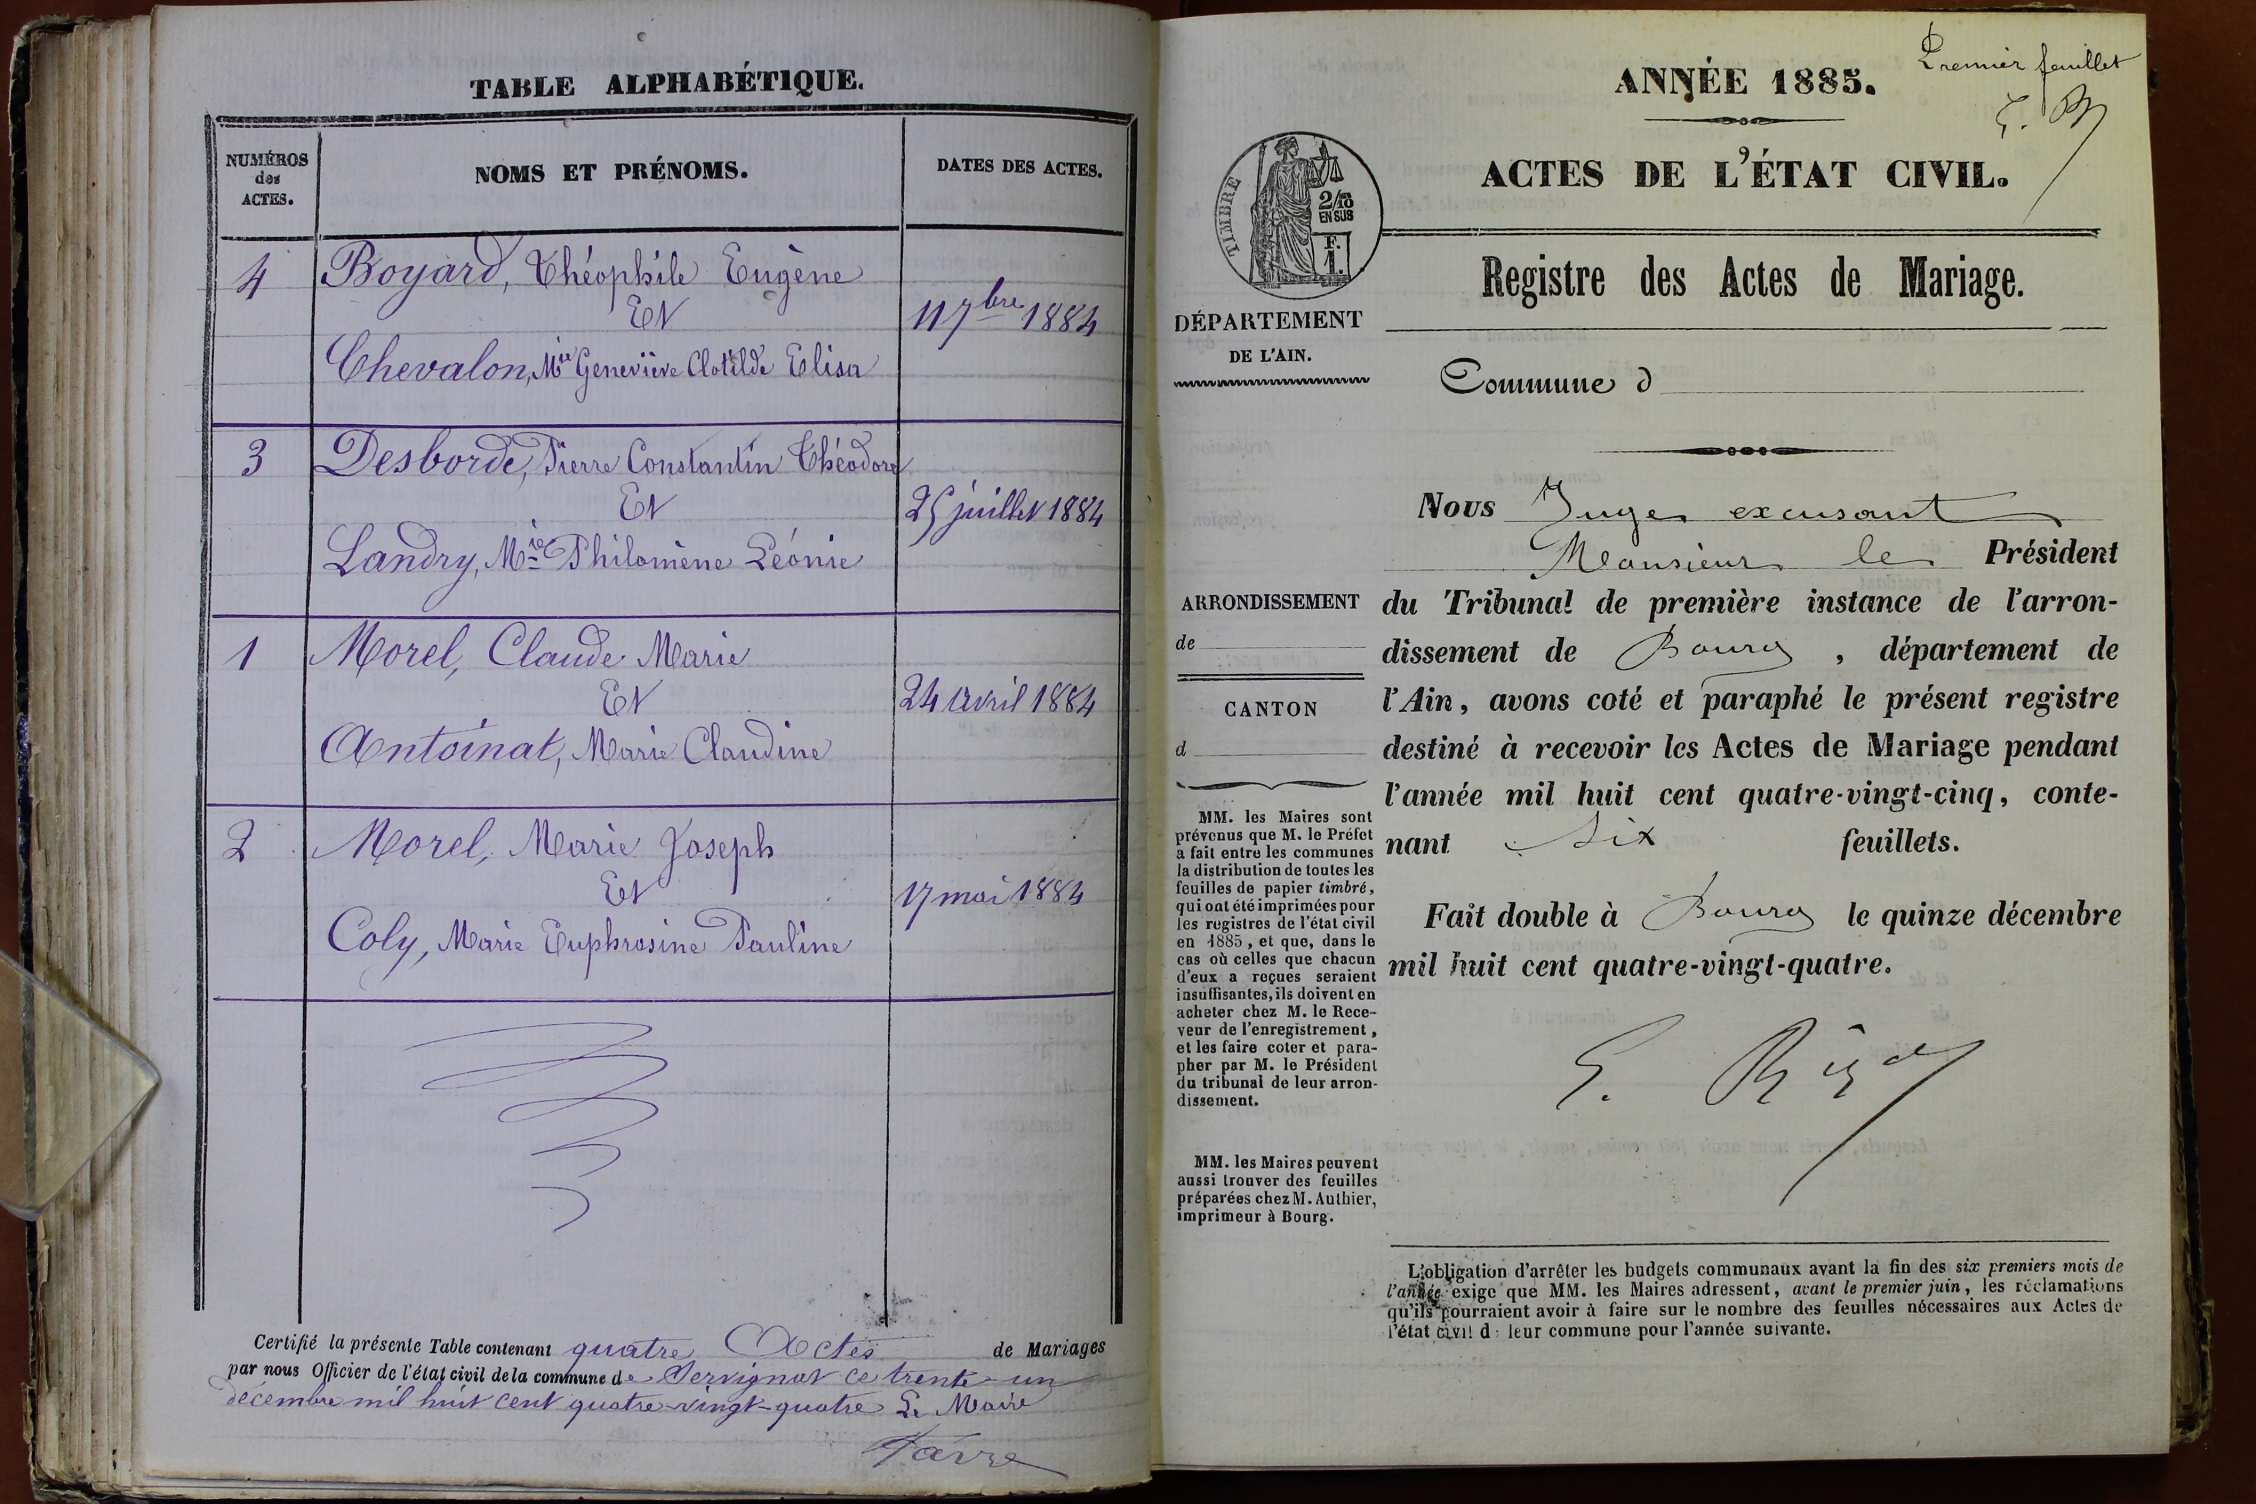 TABLE ALPHABÉTIQUE.
NUMÉROS
des
ACTES.
NOMS ET PRÉNOMS.
DATES DES ACTES.
4
Boyard, Théophile Eugène
Et
Chevalon, Mie Geneviève Clotilde Elisa
11 7bre 1884
3
Desborde, Pierre Constantin Théodore
Et
Landry, Mie Philomène Léonie
25 juillet 1884
1
Morel, Claude Marie
Et
Antoinat, Marie Claudine
24 avril 1884
2
Morel, Marie Joseph
Et
Coly, Marie Euphrosine Pauline
17 mai 1884
Certifié la présente Table contenant quatre Actes de Mariages
par nous Officier de l'état civil de la commune de Servignat ce trente-un
décembre mil huit cent quatre-vingt-quatre Le Maire
Favre
Premier feuillet
ANNÉE 1885.
ACTES DE L'ÉTAT CIVIL.
TIMBRE
2/10
EN SUS
F.
1.
Registre des Actes de Mariage.
DÉPARTEMENT
DE L'AIN.
Commune d
Nous Juge excusant
Monsieur le Président
du Tribunal de première instance de l'arron-
dissement de Bourg, département de
l'Ain, avons coté et paraphé le présent registre
destiné à recevoir les Actes de Mariage pendant
l'année mil huit cent quatre-vingt-cinq, conte-
nant Six feuillets.
Fait double à Bourg le quinze décembre
mil huit cent quatre-vingt-quatre.
ARRONDISSEMENT
de
CANTON
d
MM. les Maires sont
prévenus que M. le Préfet
a fait entre les communes
la distribution de toutes les
feuilles de papier timbré,
qui ont été imprimées pour
les registres de l'état civil
en 1885, et que, dans le
cas où celles que chacun
d'eux a reçues seraient
insuffisantes, ils doivent en
acheter chez M. le Rece-
veur de l'enregistrement,
et les faire coter et para-
pher par M. le Président
du tribunal de leur arron-
dissement.
MM. les Maires peuvent
aussi trouver des feuilles
préparées chez M. Authier,
imprimeur à Bourg.
L'obligation d'arrêter les budgets communaux avant la fin des six premiers mois de
l'année exige que MM. les Maires adressent, avant le premier juin, les réclamations
qu'ils pourraient avoir à faire sur le nombre des feuilles nécessaires aux Actes de
l'état civil de leur commune pour l'année suivante.